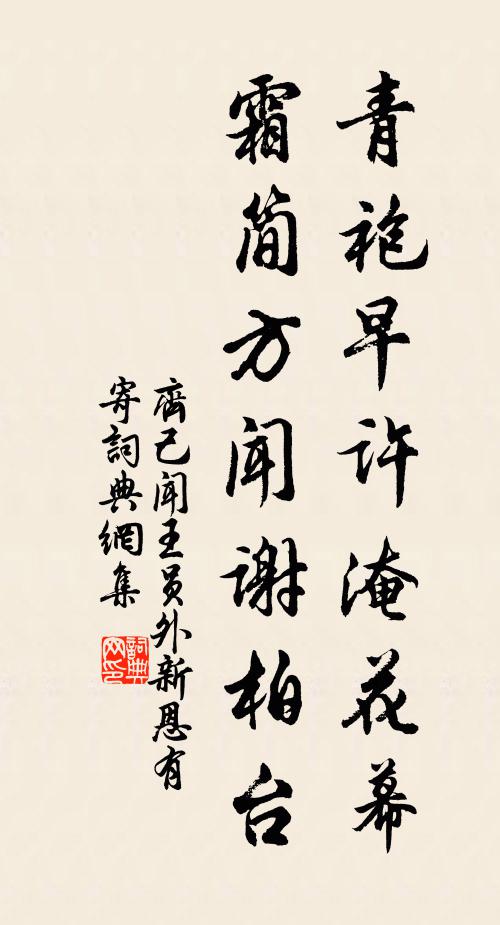 青袍早许淹花幕
霜简方闻谢柏台
齊己闻王员外新恩有
寄詞典網集
詞典网印